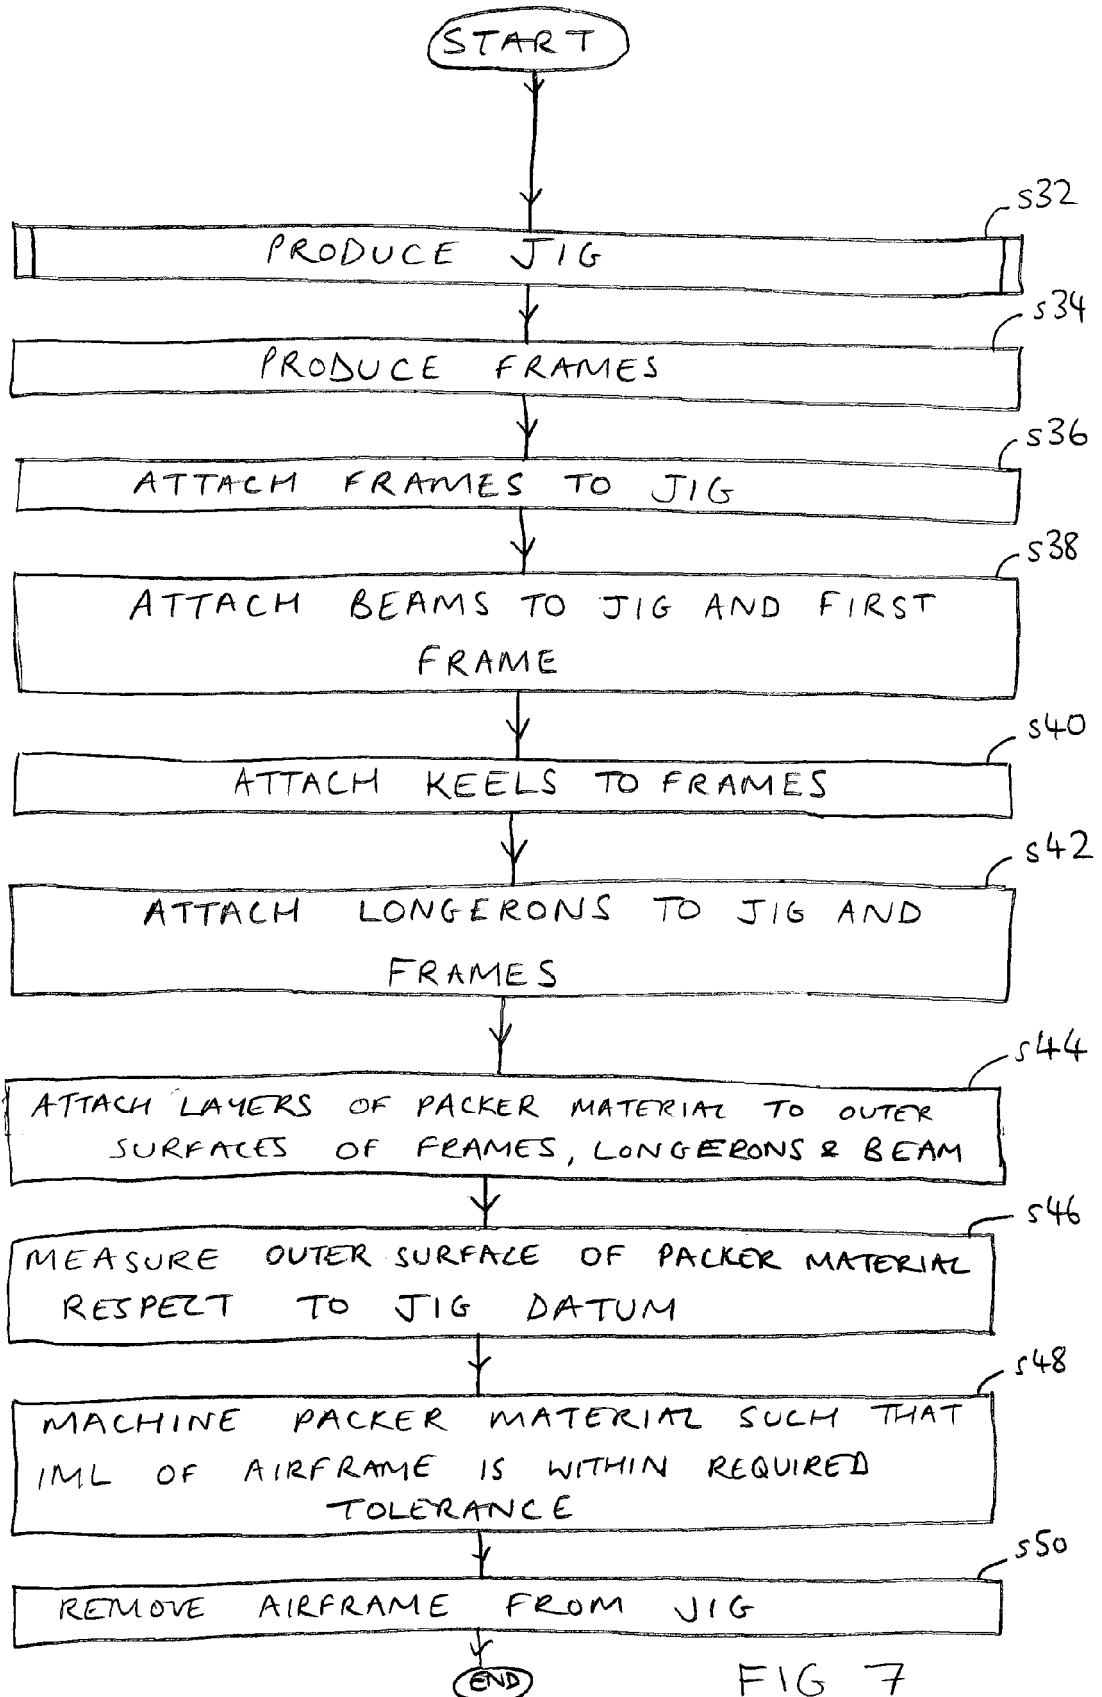 START
s32
PRODUCE JIG
s34
PRODUCE FRAMES
s36
ATTACH FRAMES TO JIG
s38
ATTACH BEAMS TO JIG AND FIRST
FRAME
s40
ATTACH KEELS TO FRAMES
s42
ATTACH LONGERONS TO JIG AND
FRAMES
s44
ATTACH LAYERS OF PACKER MATERIAL TO OUTER
SURFACES OF FRAMES, LONGERONS & BEAM
s46
MEASURE OUTER SURFACE OF PACKER MATERIAL
RESPECT TO JIG DATUM
s48
MACHINE PACKER MATERIAL SUCH THAT
IML OF AIRFRAME IS WITHIN REQUIRED
TOLERANCE
s50
REMOVE AIRFRAME FROM JIG
END
FIG 7